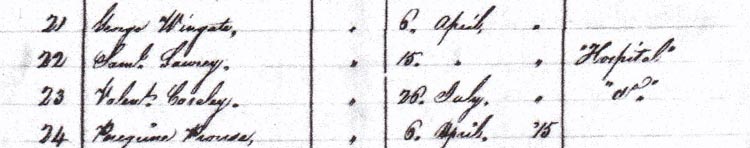 21 George Wingate, " 6. April, "
22 Sam.l Lowrey. " 15. " " "Hospital"
23 Valent. Cooley. " 26. July. " "d.o"
24 Peregrine Prouse, " 6. April. '15